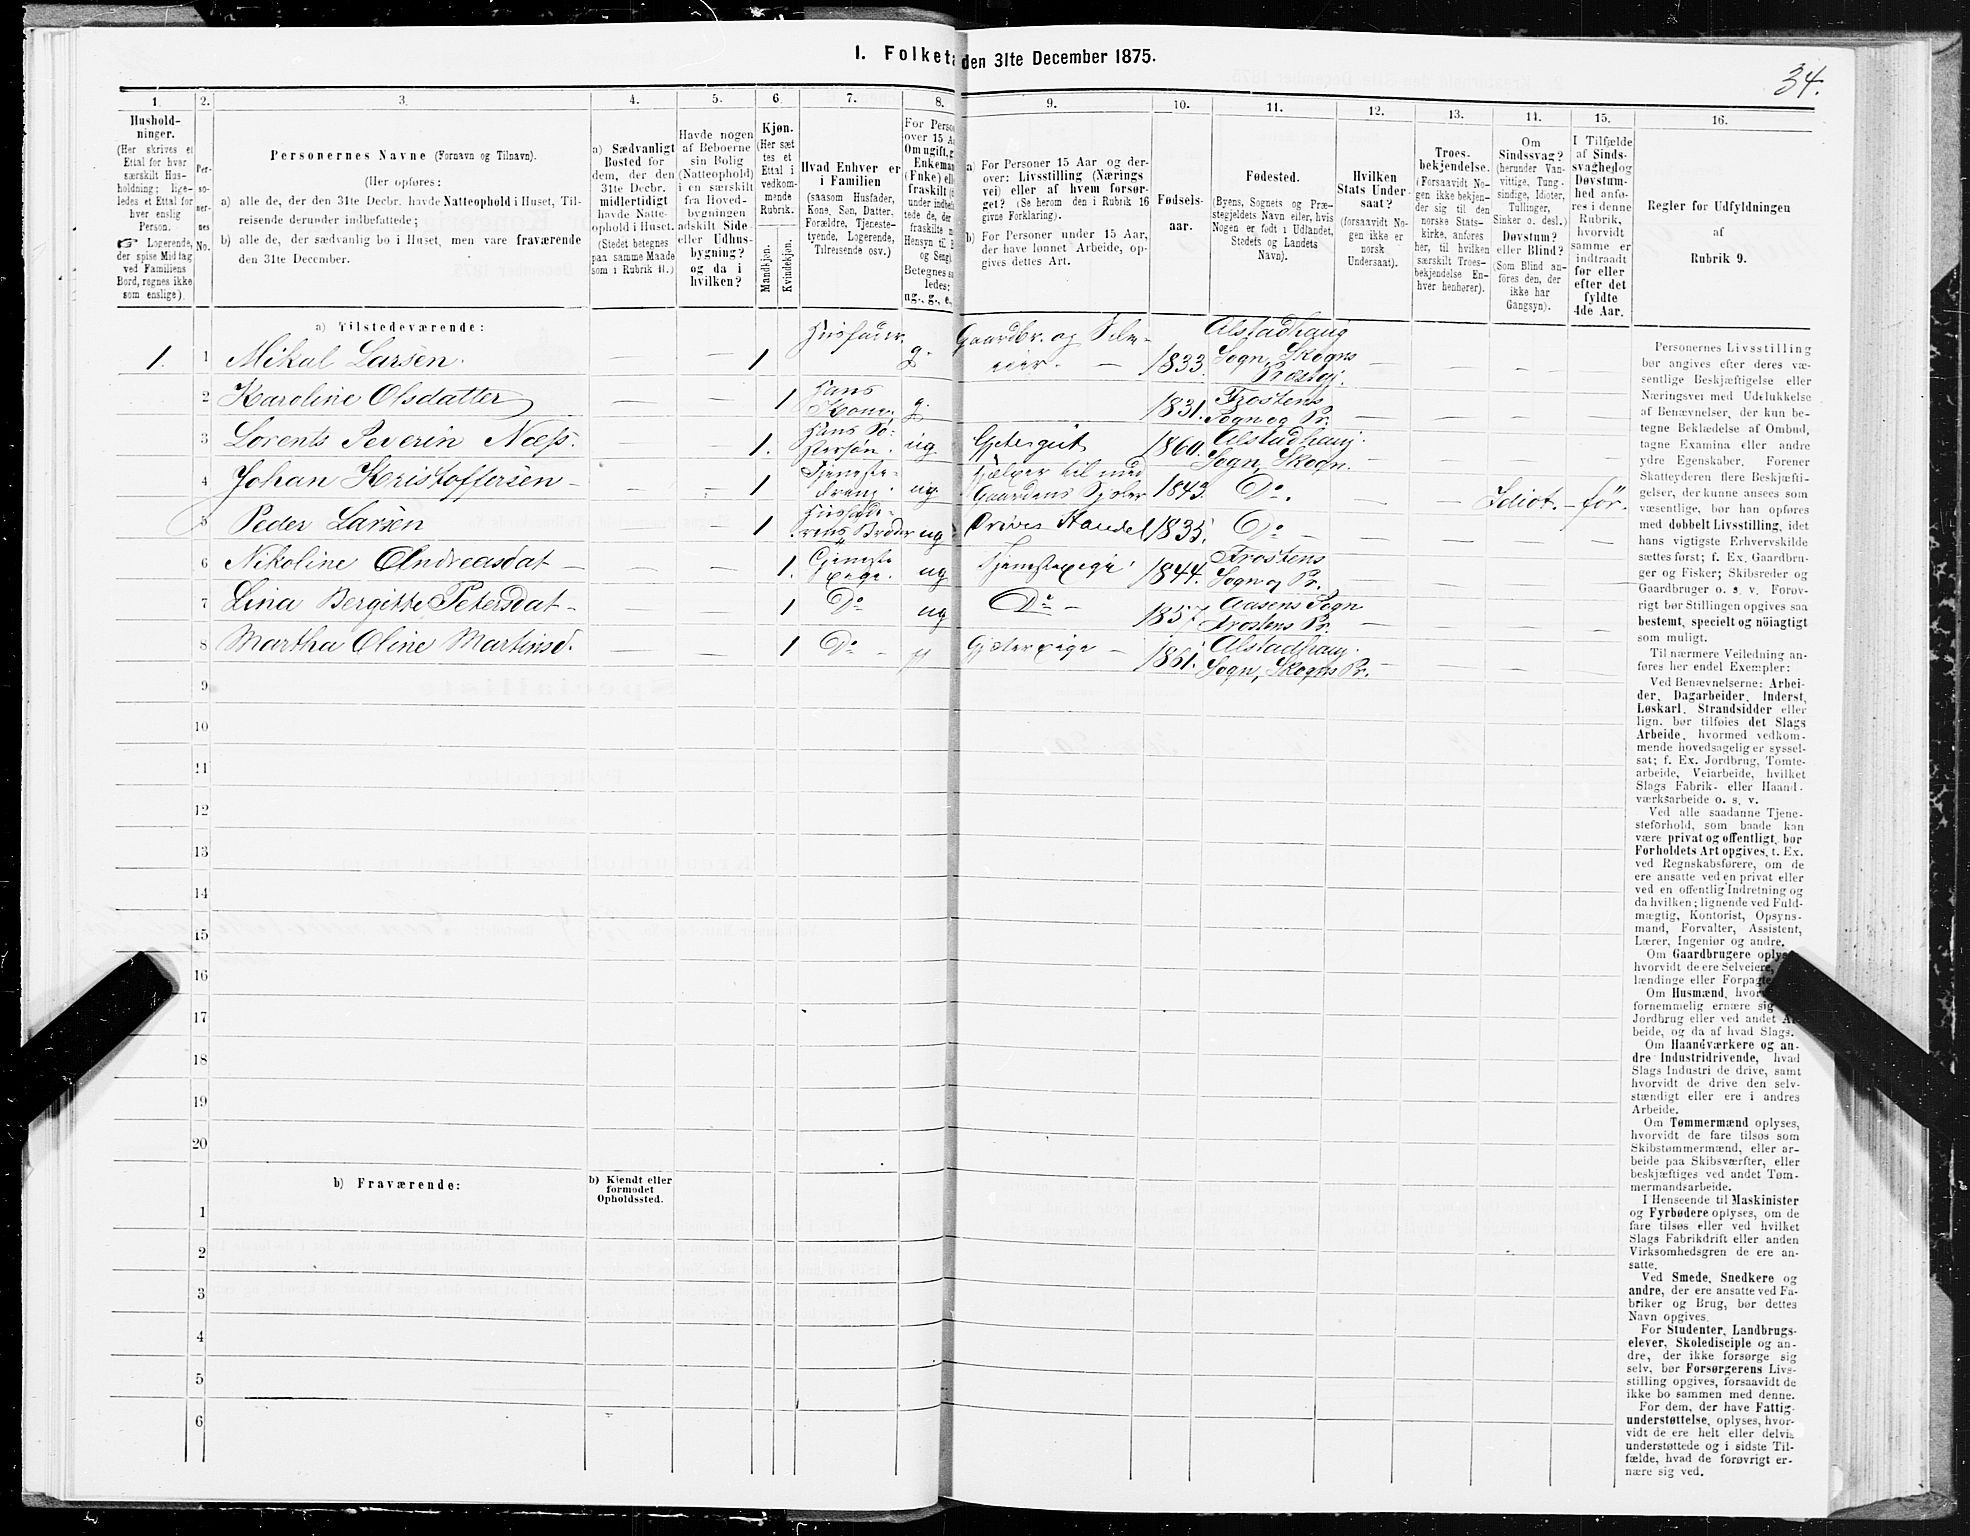 I. Folketa den 31te December 1875.
34.
1. 2. 3. 4. 5. 6. 7. 8. 9. 10. 11. 12. 13. 14. 15. 16.
Hushold-
ninger.
(Her skrives et
Ettal for hver
særskilt Hus-
holdning; lige-
ledes et Ettal for
hver enslig
Person.
☞ Logerende,
der spise Middag
ved Familiens
Bord, regnes ikke
som enslige).
Per-
so-
ner-
nes
No.
Personernes Navne (Fornavn og Tilnavn).
(Her opføres:
a) alle de, der den 31te Decbr. havde Natteophold i Huset, Til-
reisende derunder indbefattede;
b) alle de, der sædvanlig bo i Huset, men vare fraværende
den 31te December.
a) Sædvanligt
Bosted for
dem, der den
31te Decbr.
midlertidigt
havde Natte-
ophold i Huset.
(Stedet betegnes
paa samme Maade
som i Rubrik 11.)
Havde nogen
af Beboerne
sin Bolig
(Natteophold)
i en særskilt
fra Hoved-
bygningen
adskilt Side-
eller Udhus-
bygning?
og da i
hvilken?
Kjøn.
(Her sæt-
tes et
Ettal i
vedkom-
mende
Rubrik.
Mandkjøn.
Kvindekjøn.
Hvad Enhver er
i Familien
(saasom Husfader,
Kone, Søn, Datter,
Forældre, Tjeneste-
tyende, Logerende,
Tilreisende osv.)
For Perso
over 15 A
Om ugift, g
Enkeman
(Enke) ell
fraskilt
under indbe
tede de, der
fraskilte
Hensyn til
og Seng).
Betegnes s
ledes:
ug., g., e.,
a) For Personer 15 Aar og der-
over: Livsstilling (Nærings
vei) eller af hvem forsør-
get? (Se herom den i Rubrik 16
givne Forklaring).
b) For Personer under 15 Aar,
der have lønnet Arbeide, op-
gives dettes Art.
Fødsels-
aar.
Fødested.
(Byens, Sognets og Præ-
stegjeldets Navn eller, hvis
Nogen er født i Udlandet,
Stedets og Landets
Navn).
Hvilken
Stats Under-
saat?
(forsaavidt No-
gen ikke er
norsk
Undersaat).
Troes-
bekjendelse.
(Forsaavidt No-
gen ikke bekjen-
der sig til den
norske Stats-
kirke, anføres
her, til hvilken
særskilt Troes-
bekjendelse En-
hver henhører).
Om
Sindssvag?
(herunder Van-
vittige, Tung-
sindige, Idioter,
Tullinger,
Sinker o. desl.)
Døvstum?
eller Blind?
(Som Blind an-
føres den, der
ikke har
Gangsyn).
I Tilfælde
af Sinds-
svaghed og
Døvstum-
hed anfø-
res i denne
Rubrik,
hvorvidt
samme er
indtraadt
før eller
efter det
fyldte
4de Aar.
Regler for Udfyldningen
af
Rubrik 9.
a) Tilstedeværende:
1. 1 Mikal Larsen. — 1 Husfader. g. Gaardbr. og Selv-
eier. — 1833. Alstadhaug
Sogn, Skogns
Præstgj. — — — —
2 Karoline Olsdatter — — 1 Hans
Kone. g. 1831. Frostens
Sogn og Pr. — — — —
3 Lorents Peverin Noess. — — 1. Hans
ug. Gjetergut 1860. Alstadhaug.
Sogn, Skogn. — — — —
4 Johan Kristoffersen — — — 1 Tjeneste-
dreng. ug. Hjælper til med
Gaardens 1843. Do. — — Idiot. — før.
5 Peder Larsen — — 1 Husfade-
rens Broder ug Drives Handel 1835. Do — — — —
6 Nikoline Andreasdat — — — 1. Tjeneste
pige. ug Tjenestepige 1844. Frostens
Sogn og Pr. — — — —
7 Lina Bergitte Petersdat — — — 1 Do ug Do — 1857 Aasens Sogn
Frostens Pr. — — — —
8 Martha Oline Martinsd. — — 1 Do — Gjeterpige — 1861. Alstadhaug.
Sogn, Skogns Pr. — — — —
9
10
11
12
13
14
15
16
17
18
19
20
b) Fraværende:
b) Kjendt eller
formodet
Opholdssted.
1
2
3
4
5
6
Personernes Livsstilling
bør angives efter deres væ-
sentlige Beskjæftigelse eller
Næringsvei med Udelukkelse
af Benævnelser, der kun be-
tegne Beklædelse af Ombud,
tagne Examina eller andre
ydre Egenskaber. Forener
Skatteyderen flere Beskjæfti-
gelser, der kunne ansees som
væsentlige, bør han opføres
med dobbelt Livsstilling, idet
hans vigtigste Erhvervskilde
sættes først; f. Ex. Gaardbru-
ger og Fisker; Skibsreder og
Gaardbruger o. s. v. Forøv-
rigt bør Stillingen opgives saa
bestemt, specielt og nöiagtigt
som muligt.
Til nærmere Veiledning an-
føres her endel Exempler:
Ved Benævnelserne: Arbei-
der, Dagarbeider, Inderst,
Løskarl, Strandsidder eller
lign. bør tilføies det Slags
Arbeide, hvormed vedkom-
mende hovedsagelig er syssel-
sat; f. Ex. Jordbrug, Tomte-
arbeide, Veiarbeide, hvilket
Slags Fabrik- eller Haand-
værksarbeide o. s. v.
Ved alle saadanne Tjene-
steforhold, som baade kan
være privat og offentligt, bør
Forholdets Art opgives, t. Ex.
ved Regnskabsførere, om de
ere ansatte ved en privat eller
ved en offentlig Indretning og
da hvilken; lignende ved Fuld-
mægtig, Kontorist, Opsyns-
mand, Forvalter, Assistent,
Lærer, Ingeniør og andre.
Om Gaardbrugere oplyse
hvorvidt de ere Selveiere,
lændinge eller Forpagte
Om Husmænd, hvor
fornemmelig ernære sig
Jordbrug eller ved andet Ar-
beide, og da af hvad Slags.
Om Haandværkere og an-
dre Industridrivende, hvad
Slags Industri de drive, samt
hvorvidt de drive den selv-
stændigt eller ere i andres
Arbeide.
Om Tømmermænd oplyses,
hvorvidt de fare tilsøs som
Skibstømmermænd, eller ar-
beide paa Skibsværfter, eller
beskjæftiges ved andet Tøm-
mermandsarbeide.
I Henseende til Maskinister
og Fyrbødere oplyses, om de
fare tilsøs eller ved hvilket
Slags Fabrikdrift eller anden
Virksomhedsgren de ere an-
satte.
Ved Smede, Snedkere og
andre, der ere ansatte ved Fa-
briker og Brug, bør dettes
Navn opgives.
For Studenter, Landbrugs-
elever, Skoledisciple og an-
dre, der ikke forsørge sig
selv, bør Forsørgerens Livs-
stilling opgives, forsaavidt de
ikke bo sammen med denne.
For dem, der have Fattig-
understøttelse, oplyses, hvor-
vidt de ere helt eller delvis
understøttede og i sidste Til-
fælde, hvad de forøvrigt er-
nære sig ved.